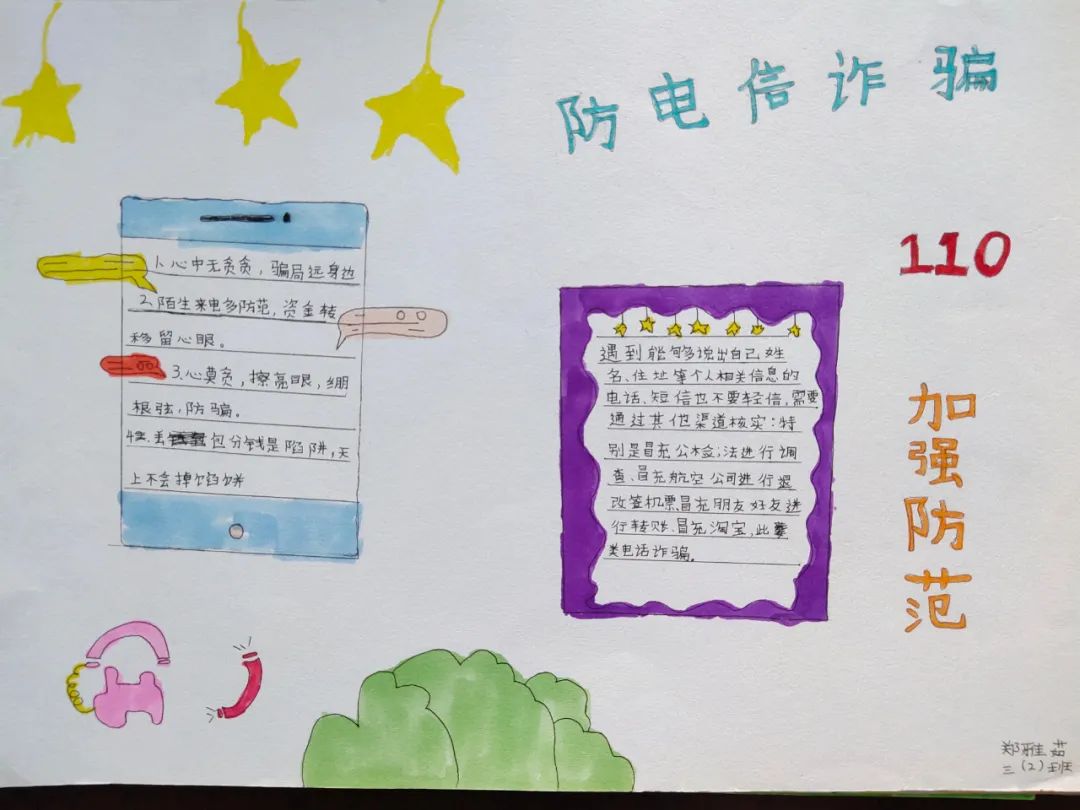 防电信诈骗
110
加强防范
1.心中无贪贪，骗局远身边
2.陌生来电多防范，资金转
移留心眼。
3.心莫贪，擦亮眼，绷
根弦，防骗。
4.丢包分钱是陷阱，天
上不会掉馅饼
遇到能够说出自己姓
名、住址等个人相关信息的
电话、短信也不要轻信，需要
通过其他渠道核实：特
别是冒充公检；法进行调
查、冒充航空公司进行退
改签机票、冒充朋友好友进
行转账、冒充淘宝，此
类电话诈骗。
郑雅茹
三（2）班